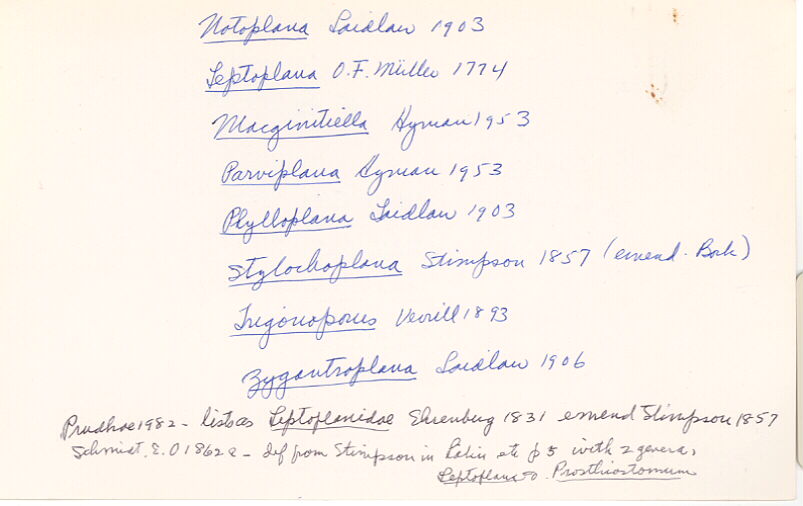 Notoplana Laidlaw 1903
Leptoplana O.F. Müller 1774
Macginitiella Hyman 1953
Parviplana Hyman 1953
Phylloplana Laidlaw 1903
Stylochoplana Stimpson 1857 (emend. Bock)
Trigonoporus Verrill 1893
Zygantroplana Laidlaw 1906
Prudhoe 1982 - lists as Leptoplanidae Ehrenberg 1831 emend Stimpson 1857
Schmidt, E.O 1862a - def from Stimpson in Latin etc p 5 with 2 genera,
Leptoplana Prosthiostomum